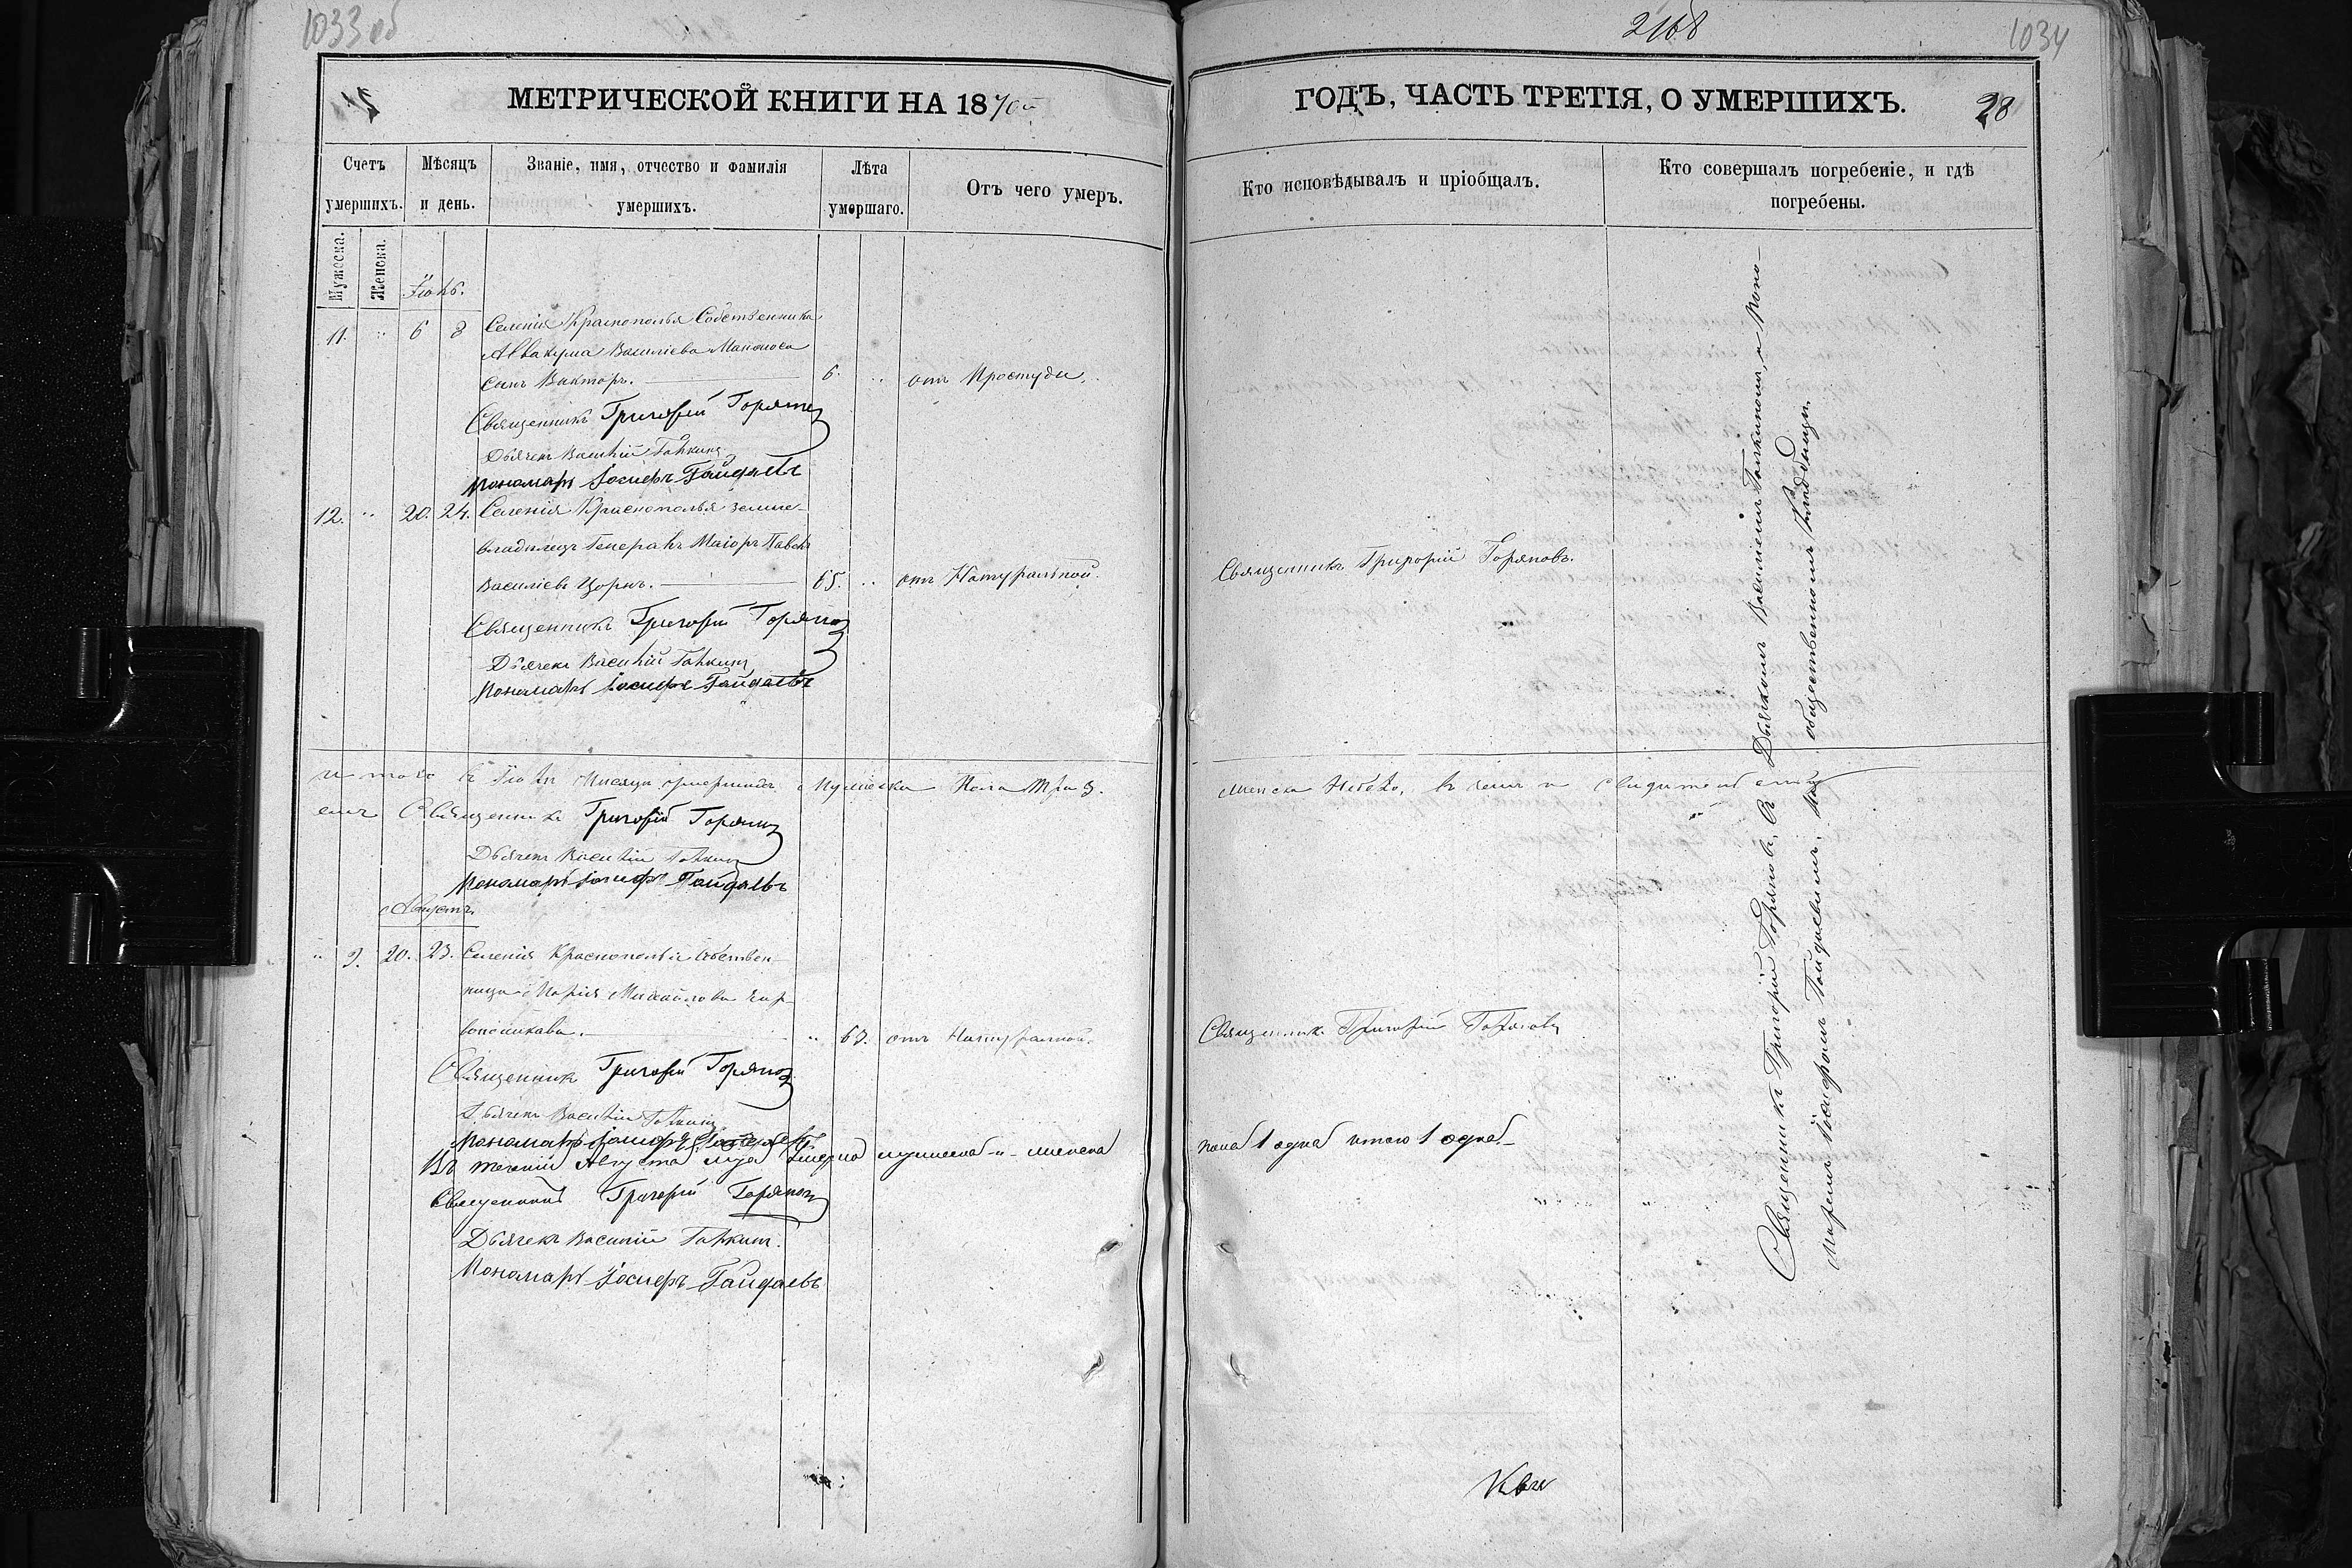 1033 об
МЕТРИЧЕСКОЙ КНИГИ НА 1870й
Счетъ умершихъ.
Мужеска.
Женска.
Мѣсяцъ и день.
Званіе, имя, отчество и фамилія умершихъ.
Лѣта умершаго.
Отъ чего умеръ.
11. 6 8 Селенія Краснополья Собственника
Аввакума Василіева
сынъ Викторъ. 6. отъ Простуды.
Священникъ Григорій Горяновъ
Дьячекъ Василій Галкинъ
Пономарь Іосифъ Гайдаевъ
12. 20. 24. Селенія Краснополья земле-
владѣлецъ Генералъ Маіоръ Павелъ
Василіевъ Цорнъ. 65. отъ Натуральной.
Священникъ Григорій Горяновъ
Дьячекъ Василій Галкинъ
Пономарь Іосифъ Гайдаевъ
итого въ Мѣсяцѣ умершихъ Мужеска Пола три 3.
Священникъ Григорій Горяновъ
Дьячекъ Василій Галкинъ
Пономарь Іосифъ Гайдаевъ
Августъ
20. 23. Селенія Краснополья Собствен-
ница Марія Михайлова
отъ Натуральной.
Священникъ Григорій Горяновъ
Дьячекъ Василій Галкинъ
Пономарь Іосифъ
Въ теченіи Августа мужеска - и - женска
Священникъ Григорій Горяновъ
Дьячекъ Василій Галкинъ.
Пономарь Іосифъ Гайдаевъ
2168
1034
ГОДЪ, ЧАСТЬ ТРЕТІЯ, О УМЕРШИХЪ.
28
Кто исповѣдывалъ и пріобщалъ.
Кто совершалъ погребеніе, и гдѣ погребены.
Священникъ Григорій Горяновъ.
женска въ чемъ и
Священникъ Григорій Горяновъ
пола 1 одна итого 1 одна
Священникъ Григорій Горяновъ, съ Дьячкомъ Василіемъ Галкинымъ, и Поно-
маремъ Іосифомъ Гайдаевымъ, на общественномъ Кладбищѣ.